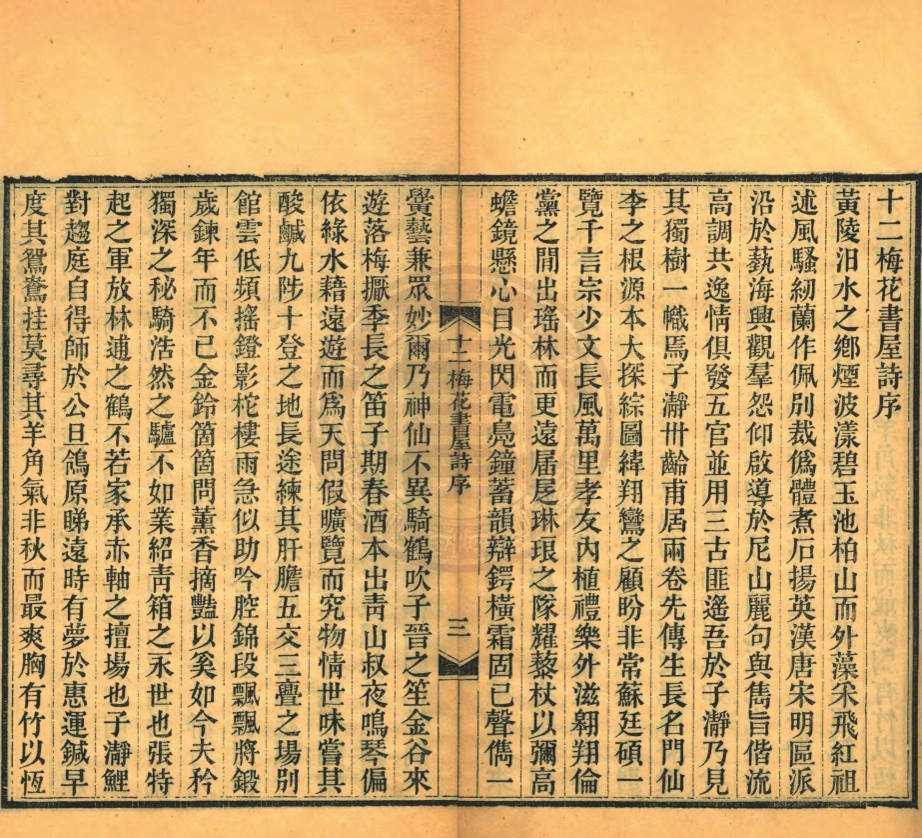 十二梅花書屋詩序
黃陵汨水之鄉煙波漾碧玉池柏山而外藻采飛紅祖
述風騷紉蘭作佩別裁僞體煮石揚英漢唐宋明區派
沿於藝海興觀羣怨仰啟導於尼山麗句與雋旨偕流
高調共逸情俱發五官並用三古匪遙吾於子瀞乃見
其獨樹一幟焉子瀞卅齡甫居兩卷先傳生長名門仙
李之根源本大探綜圖緯翔鸞之顧盼非常蘇廷碩一
覽千言宗少文長風萬里孝友內植禮樂外滋翱翔倫
黨之閒出瑤林而更遠屠㞐琳琅之隊耀藜杖以彌高
蟾鏡懸心目光閃電鳧鐘蓄韻辯鍔橫霜固已聲儁一
黌藝兼眾妙爾乃神仙不異騎鶴吹子晉之笙金谷來
遊落梅擫季長之笛子期春酒本出青山叔夜鳴琴偏
依綠水藉遠遊而爲天問假曠覽而究物情世味嘗其
酸鹹九陟十登之地長途練其肝膽五交三釁之場別
館雲低頻搖鐙影柁樓雨急似助吟腔錦段飄飄將鍛
歲鍊年而不已金鈴箇箇問薰香摘豔以奚如今夫矜
獨深之秘騎浩然之驢不如業紹青箱之永世也張特
起之軍放林逋之鶴不若家承赤軸之擅場也子瀞鯉
對趨庭自得師於公旦鴒原睇遠時有夢於惠運鍼早
度其鴛鴦挂莫尋其羊角氣非秋而最爽胸有竹以恆
十二梅花書屋詩序
三